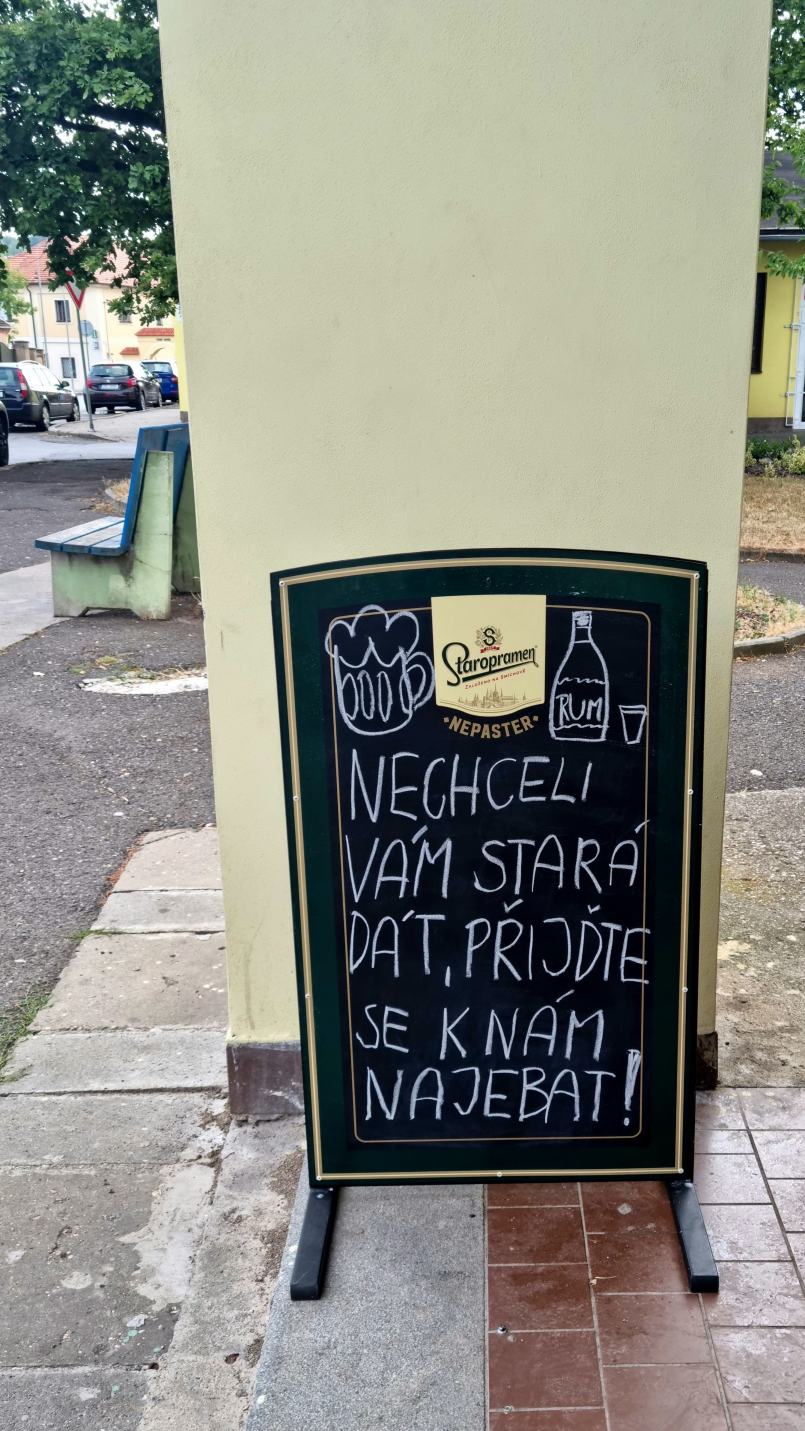 Staropramen
ZALOŽENO NA SMÍCHOVĚ
NEPASTER
RUM
NECHCELI
VÁM STARÁ
DÁT, PŘIJĎTE
SE K NÁM
NAJEBAT!